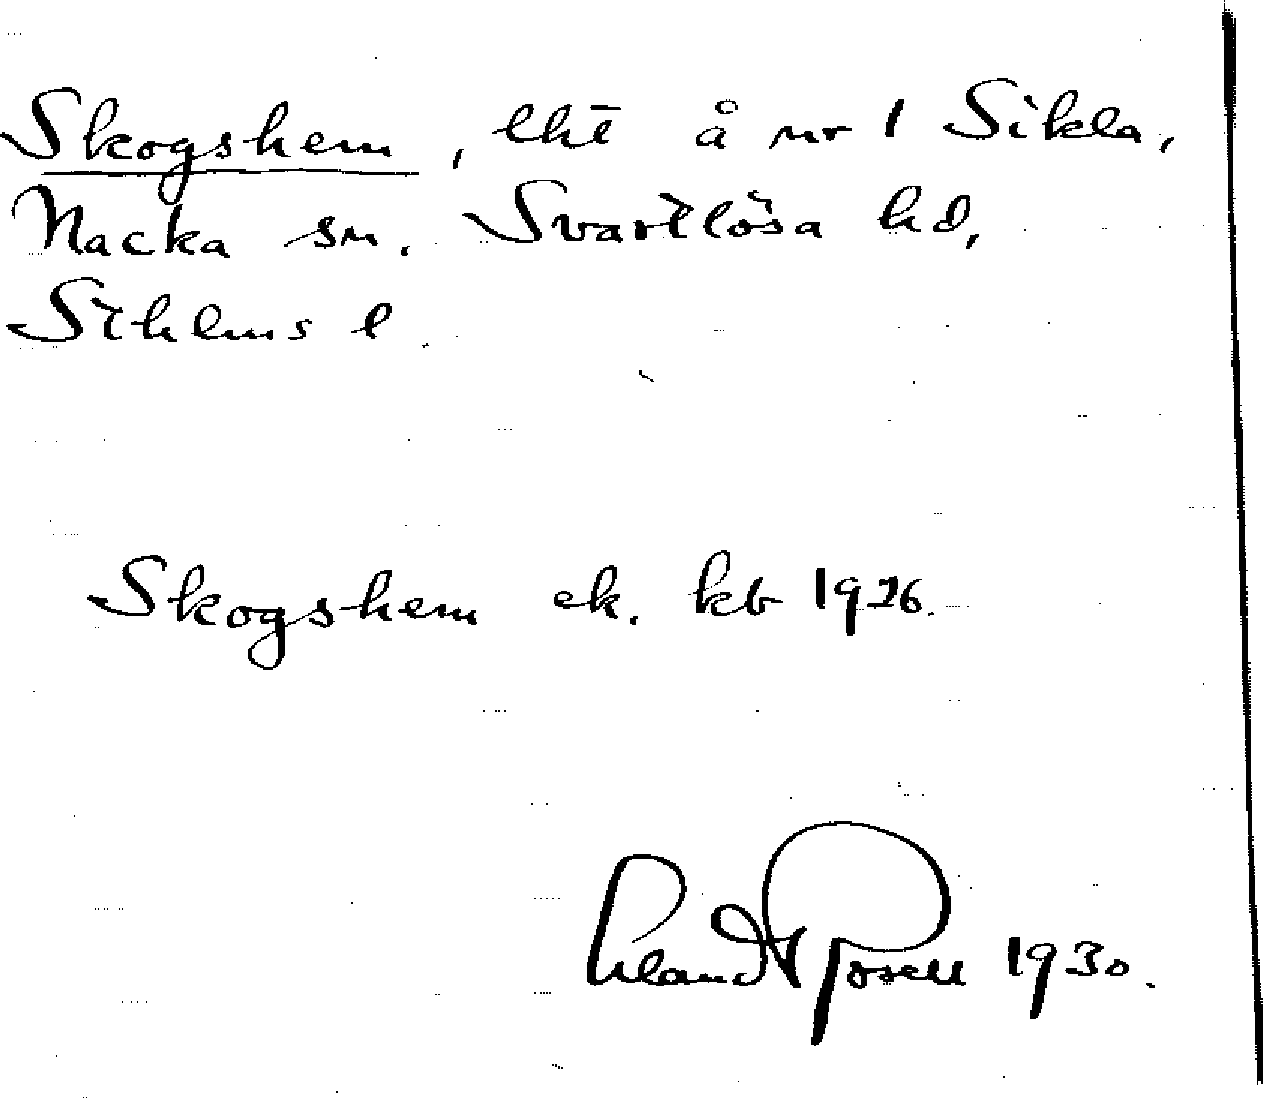 Skogshem, lht å nr 1 Sikla,
Nacka sn. Svartlösa hd,
Sthlms l.
Skogshem ek. kb 1926.
Erland Rosell 1930.